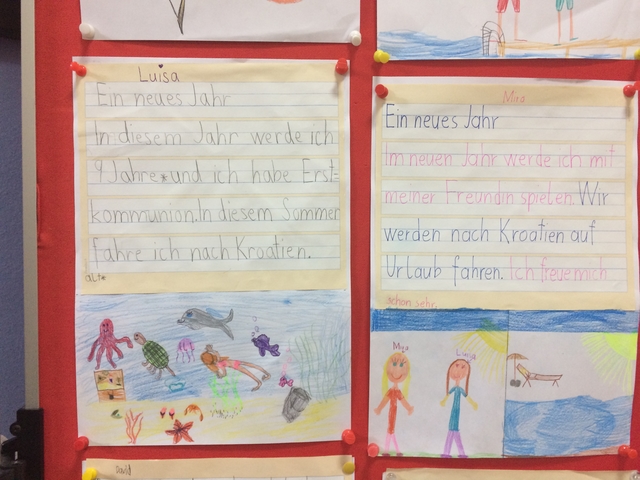 Luisa
Ein neues Jahr
In diesem Jahr werde ich
9 Jahre*und ich habe Erst=
kommunion.In diesem Sommer
fahre ich nach Kroatien.
alt*
Mira
Ein neues Jahr
Im neuen Jahr werde ich mit
meiner Freundin spielen. Wir
werden nach Kroatien auf
Urlaub fahren. Ich freue mich
schon sehr.
Mira
Luisa
David